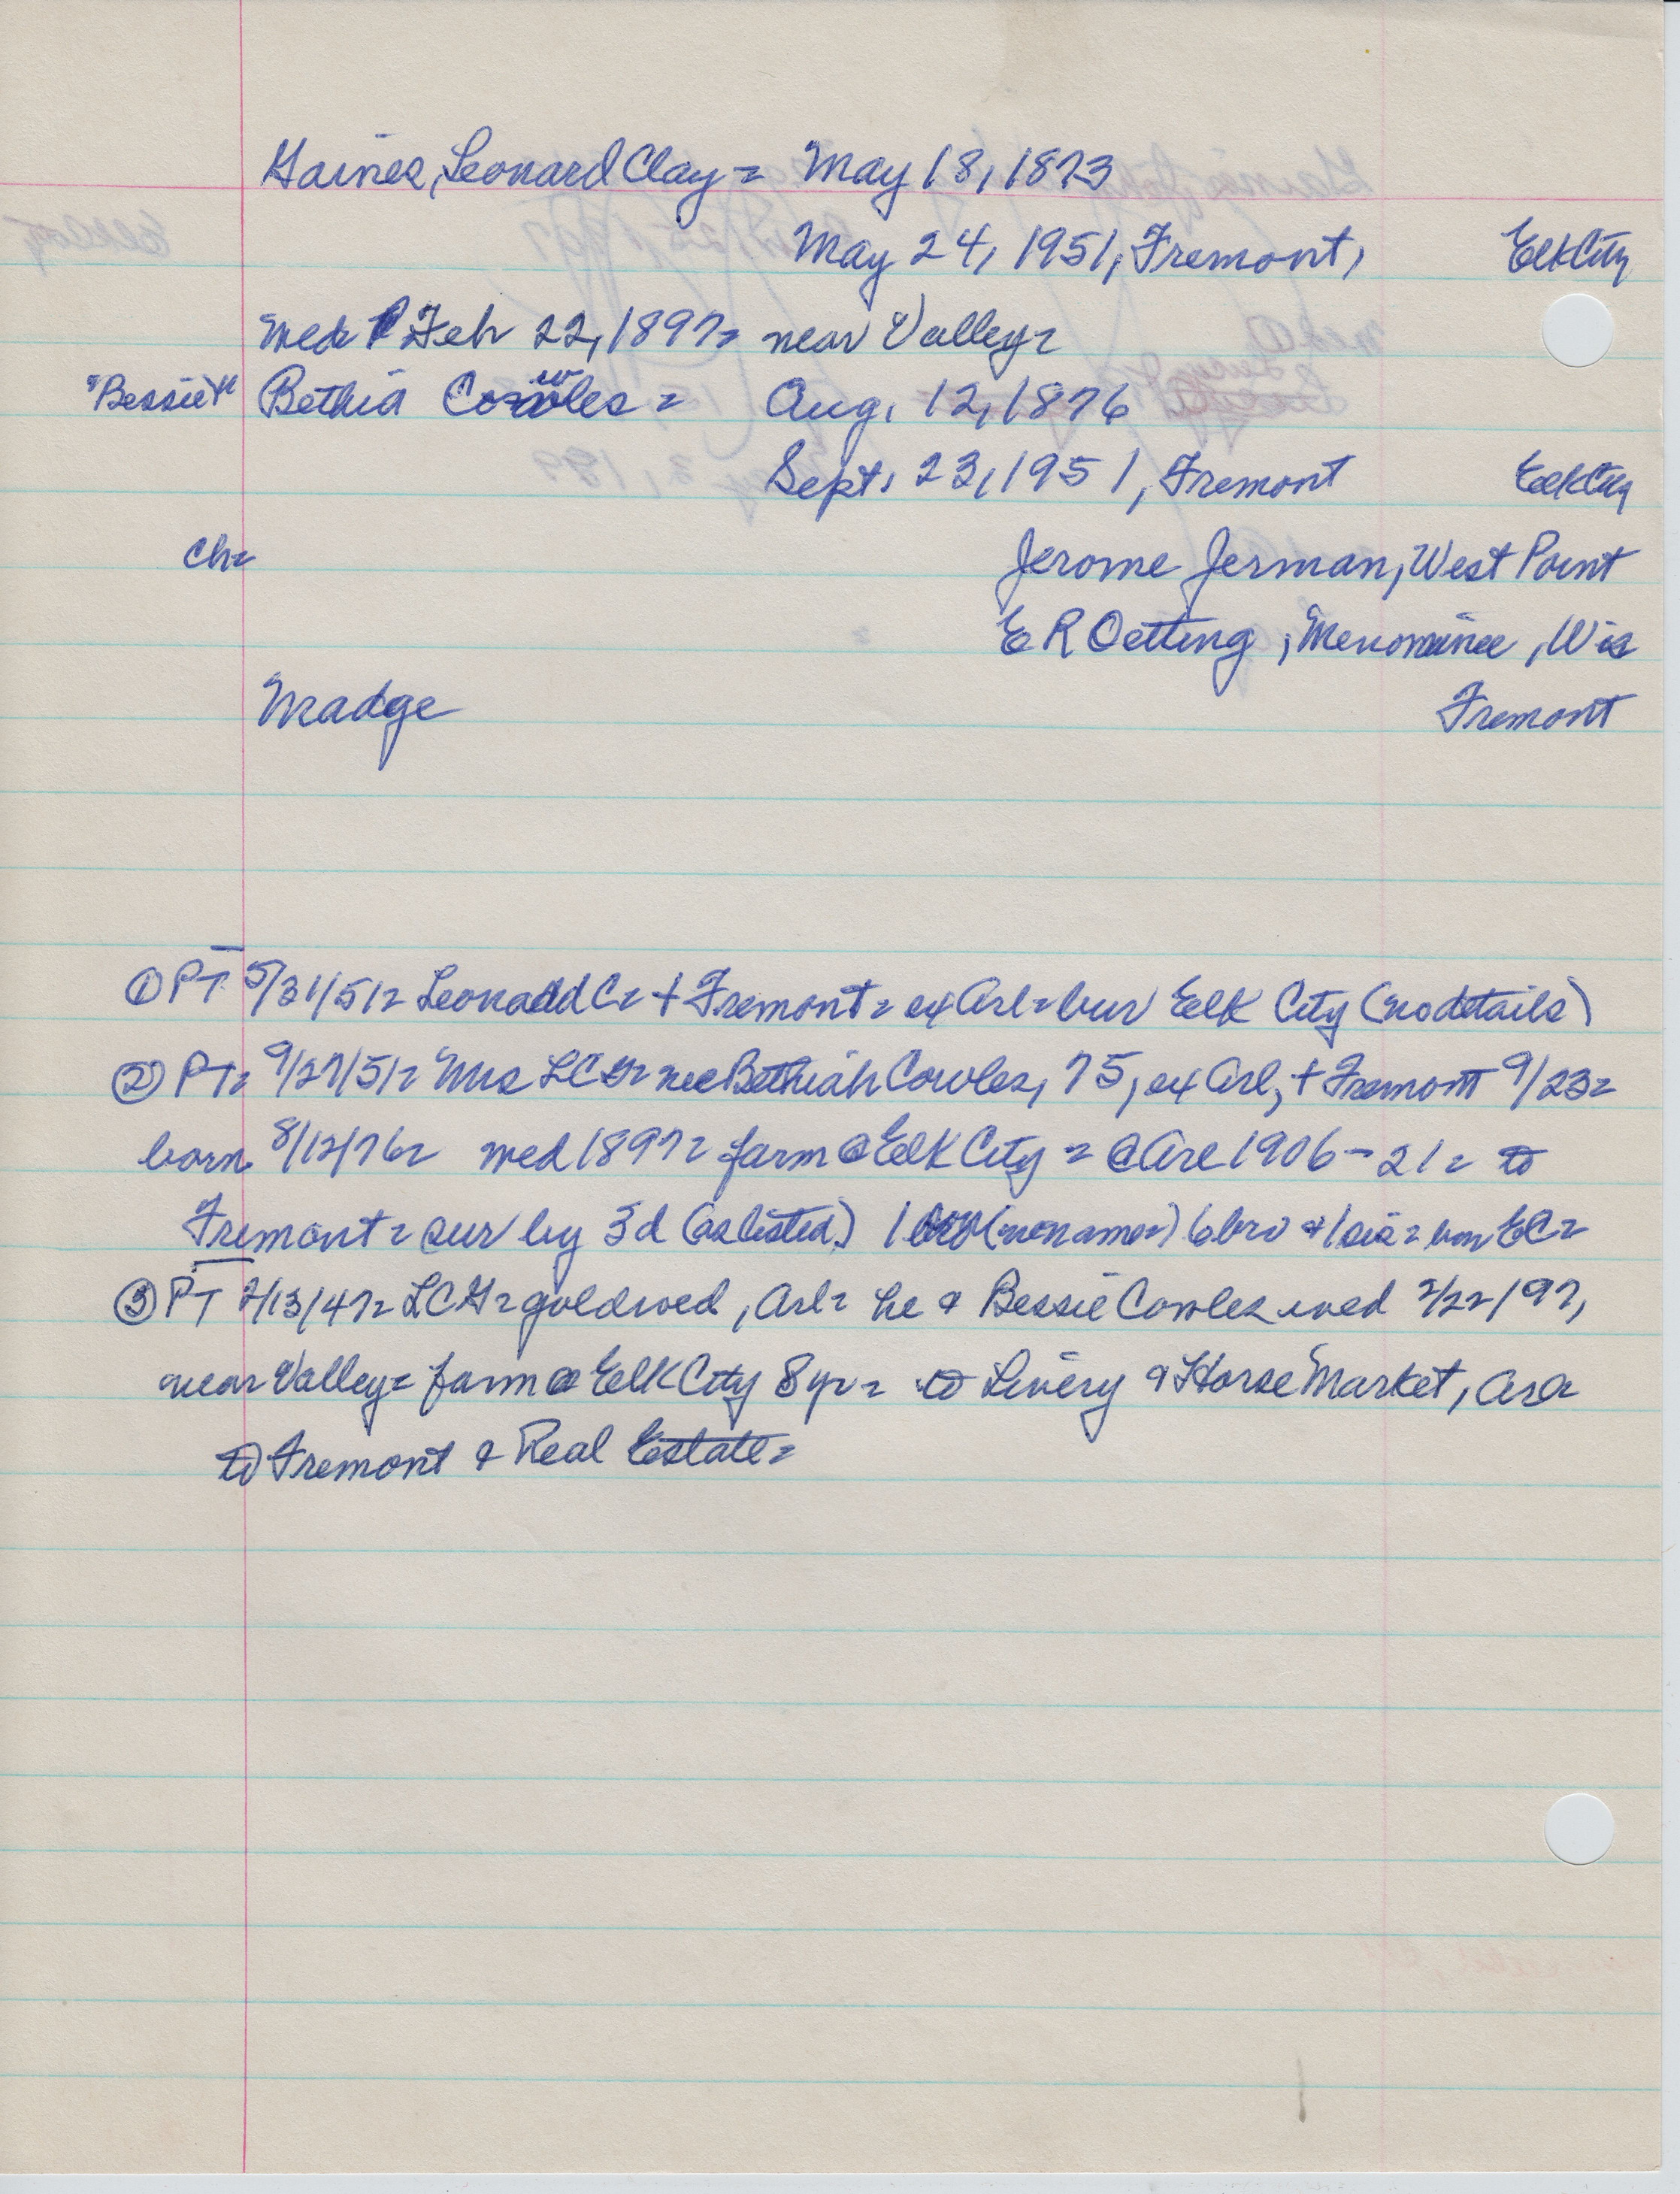 Gaines, Leonard Clay = May 18, 1873
May 24, 1951, Fremont, Elk City
wed Feb 22, 1897 = near Valley =
"Bessie" Bethia Cowles = Aug. 12, 1876
Sept. 23, 1951, Fremont Elk City
ch =
Jerome Jerman, West Point
E R Oetting, Menominee, Wis
Madge Fremont
① PT 5/31/51 = Leonard C = + Fremont = ex Arl = bur Elk City (no details)
② PT = 9/27/51 = Mrs LCG = nee Bethiah Cowles, 75, ex Arl, + Fremont 9/23 =
born 8/12/76 = wed 1897 = farm @ Elk City = @ Arl 1906-21 = to
Fremont = sur by 3d (as listed) 1 (no name) 6 bro + 1 sis = bur EC =
③ PT 2/13/47 = LCG = gold wed, Arl = he & Bessie Cowles wed 2/22/97,
near Valley = farm @ Elk City 8 yr = to Livery & Horse Market, Arl =
to Fremont & Real Estate =